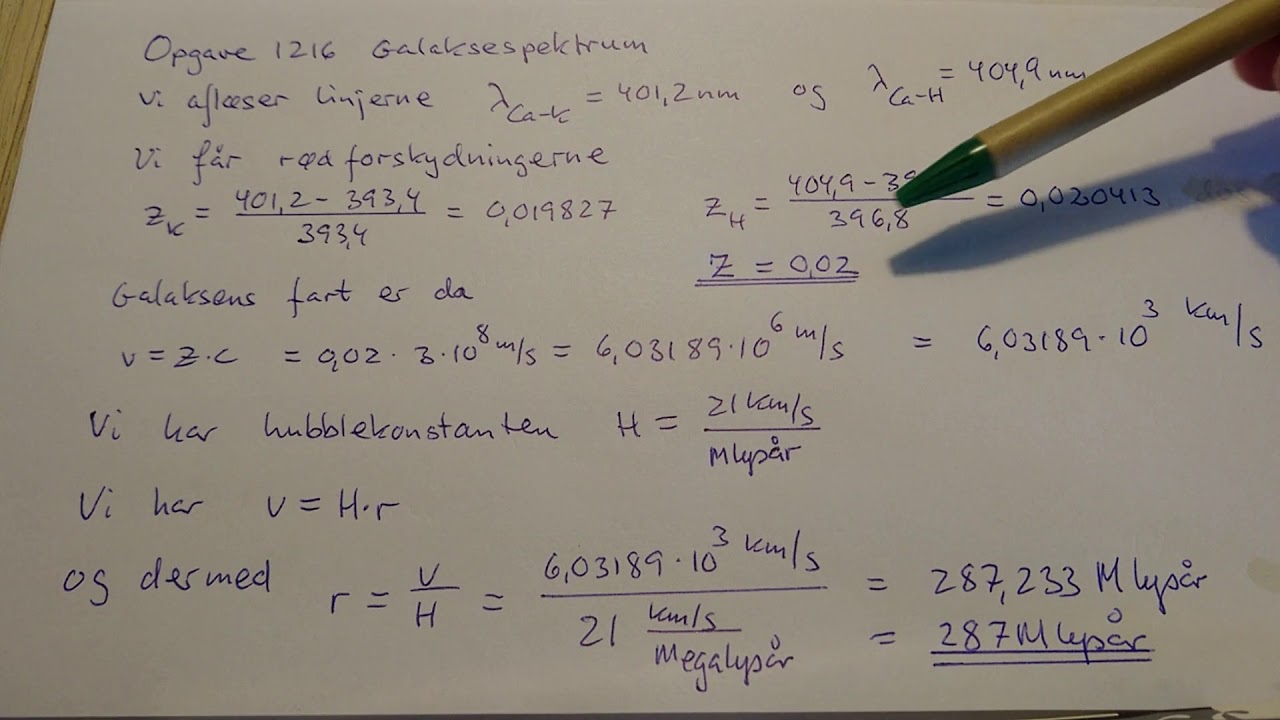 Opgave 1216 Galaksespektrum
Vi aflæser linjerne λ_Ca-K = 401,2 nm og λ_Ca-H = 404,9 nm
Vi får rødforskydningerne
z_K = (401,2 - 393,4) / 393,4 = 0,019827 z_H = (404,9 - 39 / 396,8 = 0,020413
z = 0,02
Galaksens fart er da
v = z·c = 0,02 · 3·10^8 m/s = 6,03189·10^6 m/s = 6,03189·10^3 km/s
Vi har hubblekonstanten H = 21 km/s / Mlysår
Vi har v = H·r
og dermed r = v / H = 6,03189·10^3 km/s / 21 km/s / Megalysår = 287,233 Mlysår
= 287 Mlysår